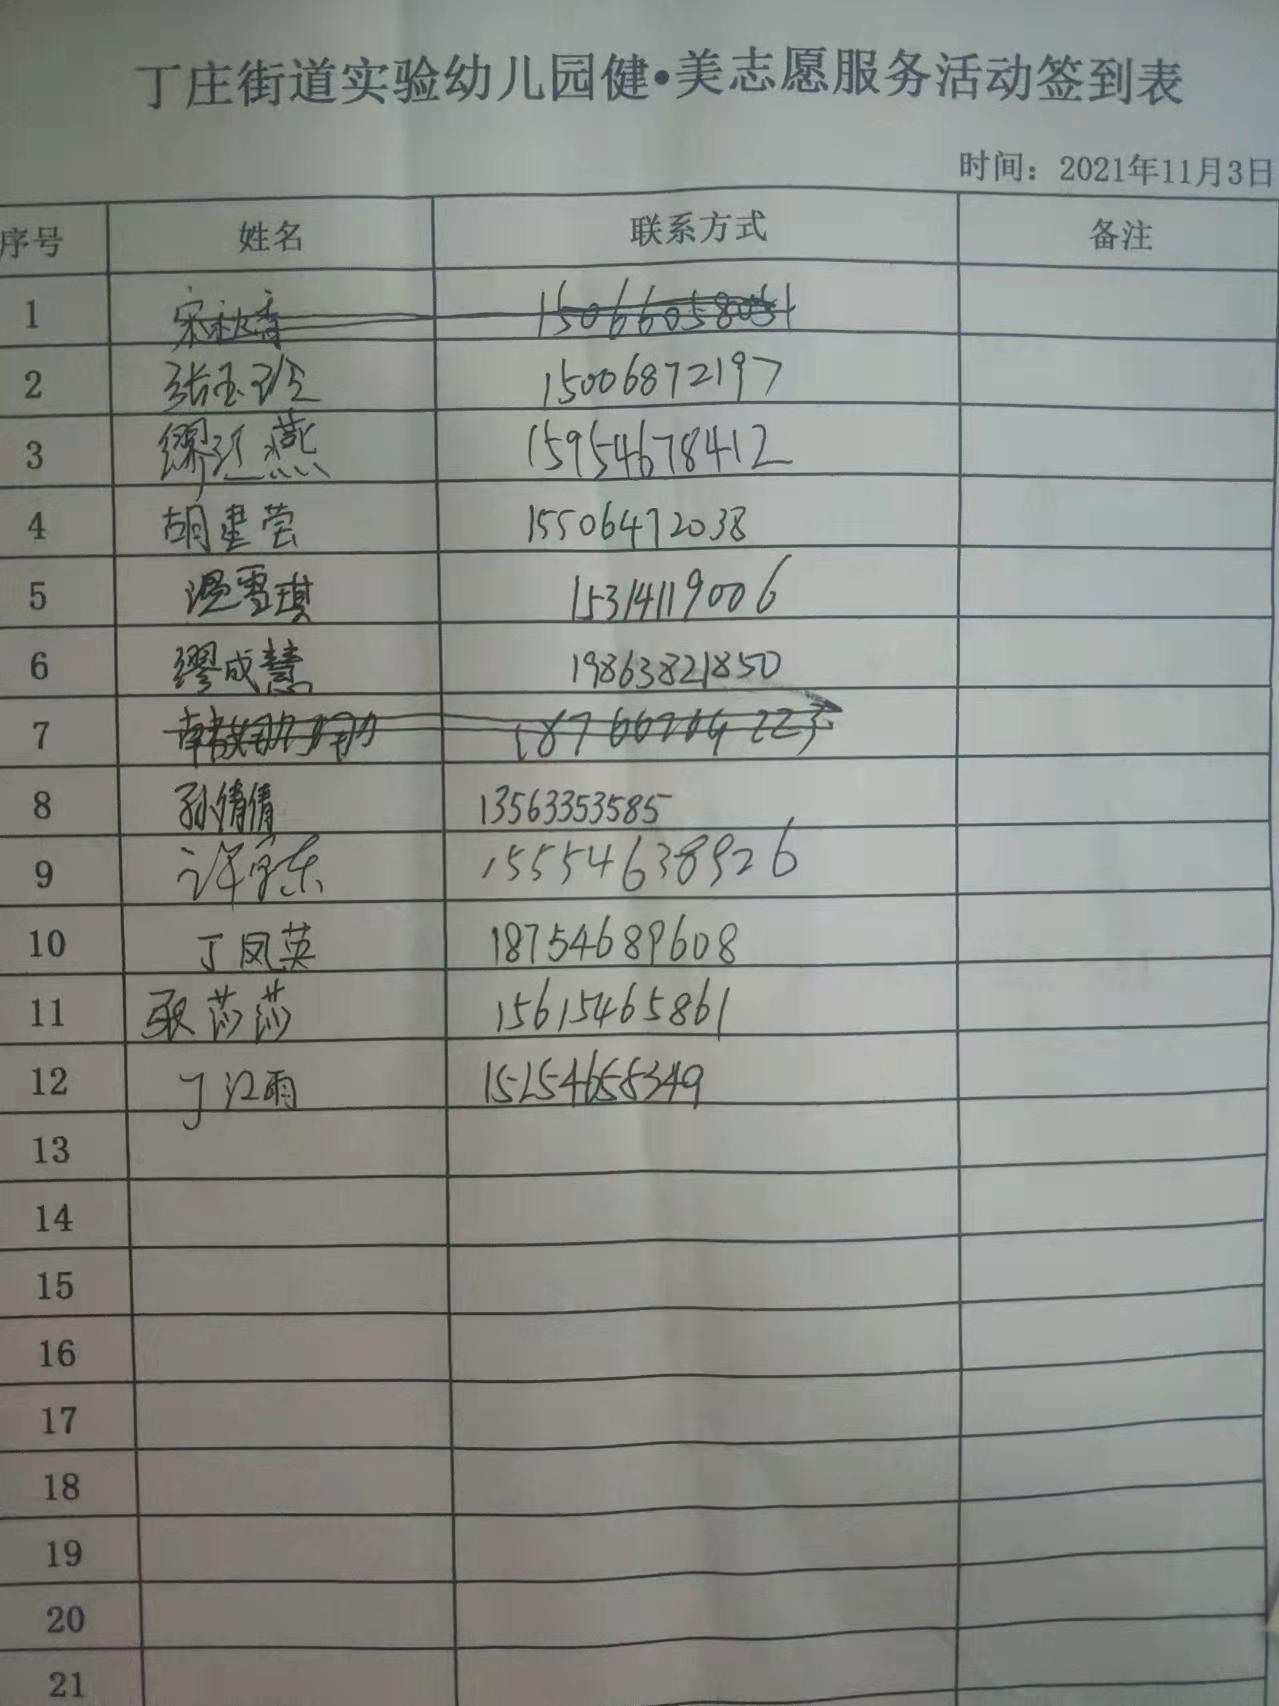 丁庄街道实验幼儿园健•美志愿服务活动签到表
时间：2021年11月3日
序号 姓名 联系方式 备注
1 宋秋香
2 张玉 15006872197
3 缪江燕 15954678412
4 胡星莹 15506472038
5 温雪琪 15314119006
6 缪成慧 19863821850
7
8 孙倩倩 13563353585
9 许 东 15554638926
10 丁凤英 18754689608
11 耿莎莎 15615465861
12 丁江雨 15254658349
13
14
15
16
17
18
19
20
21